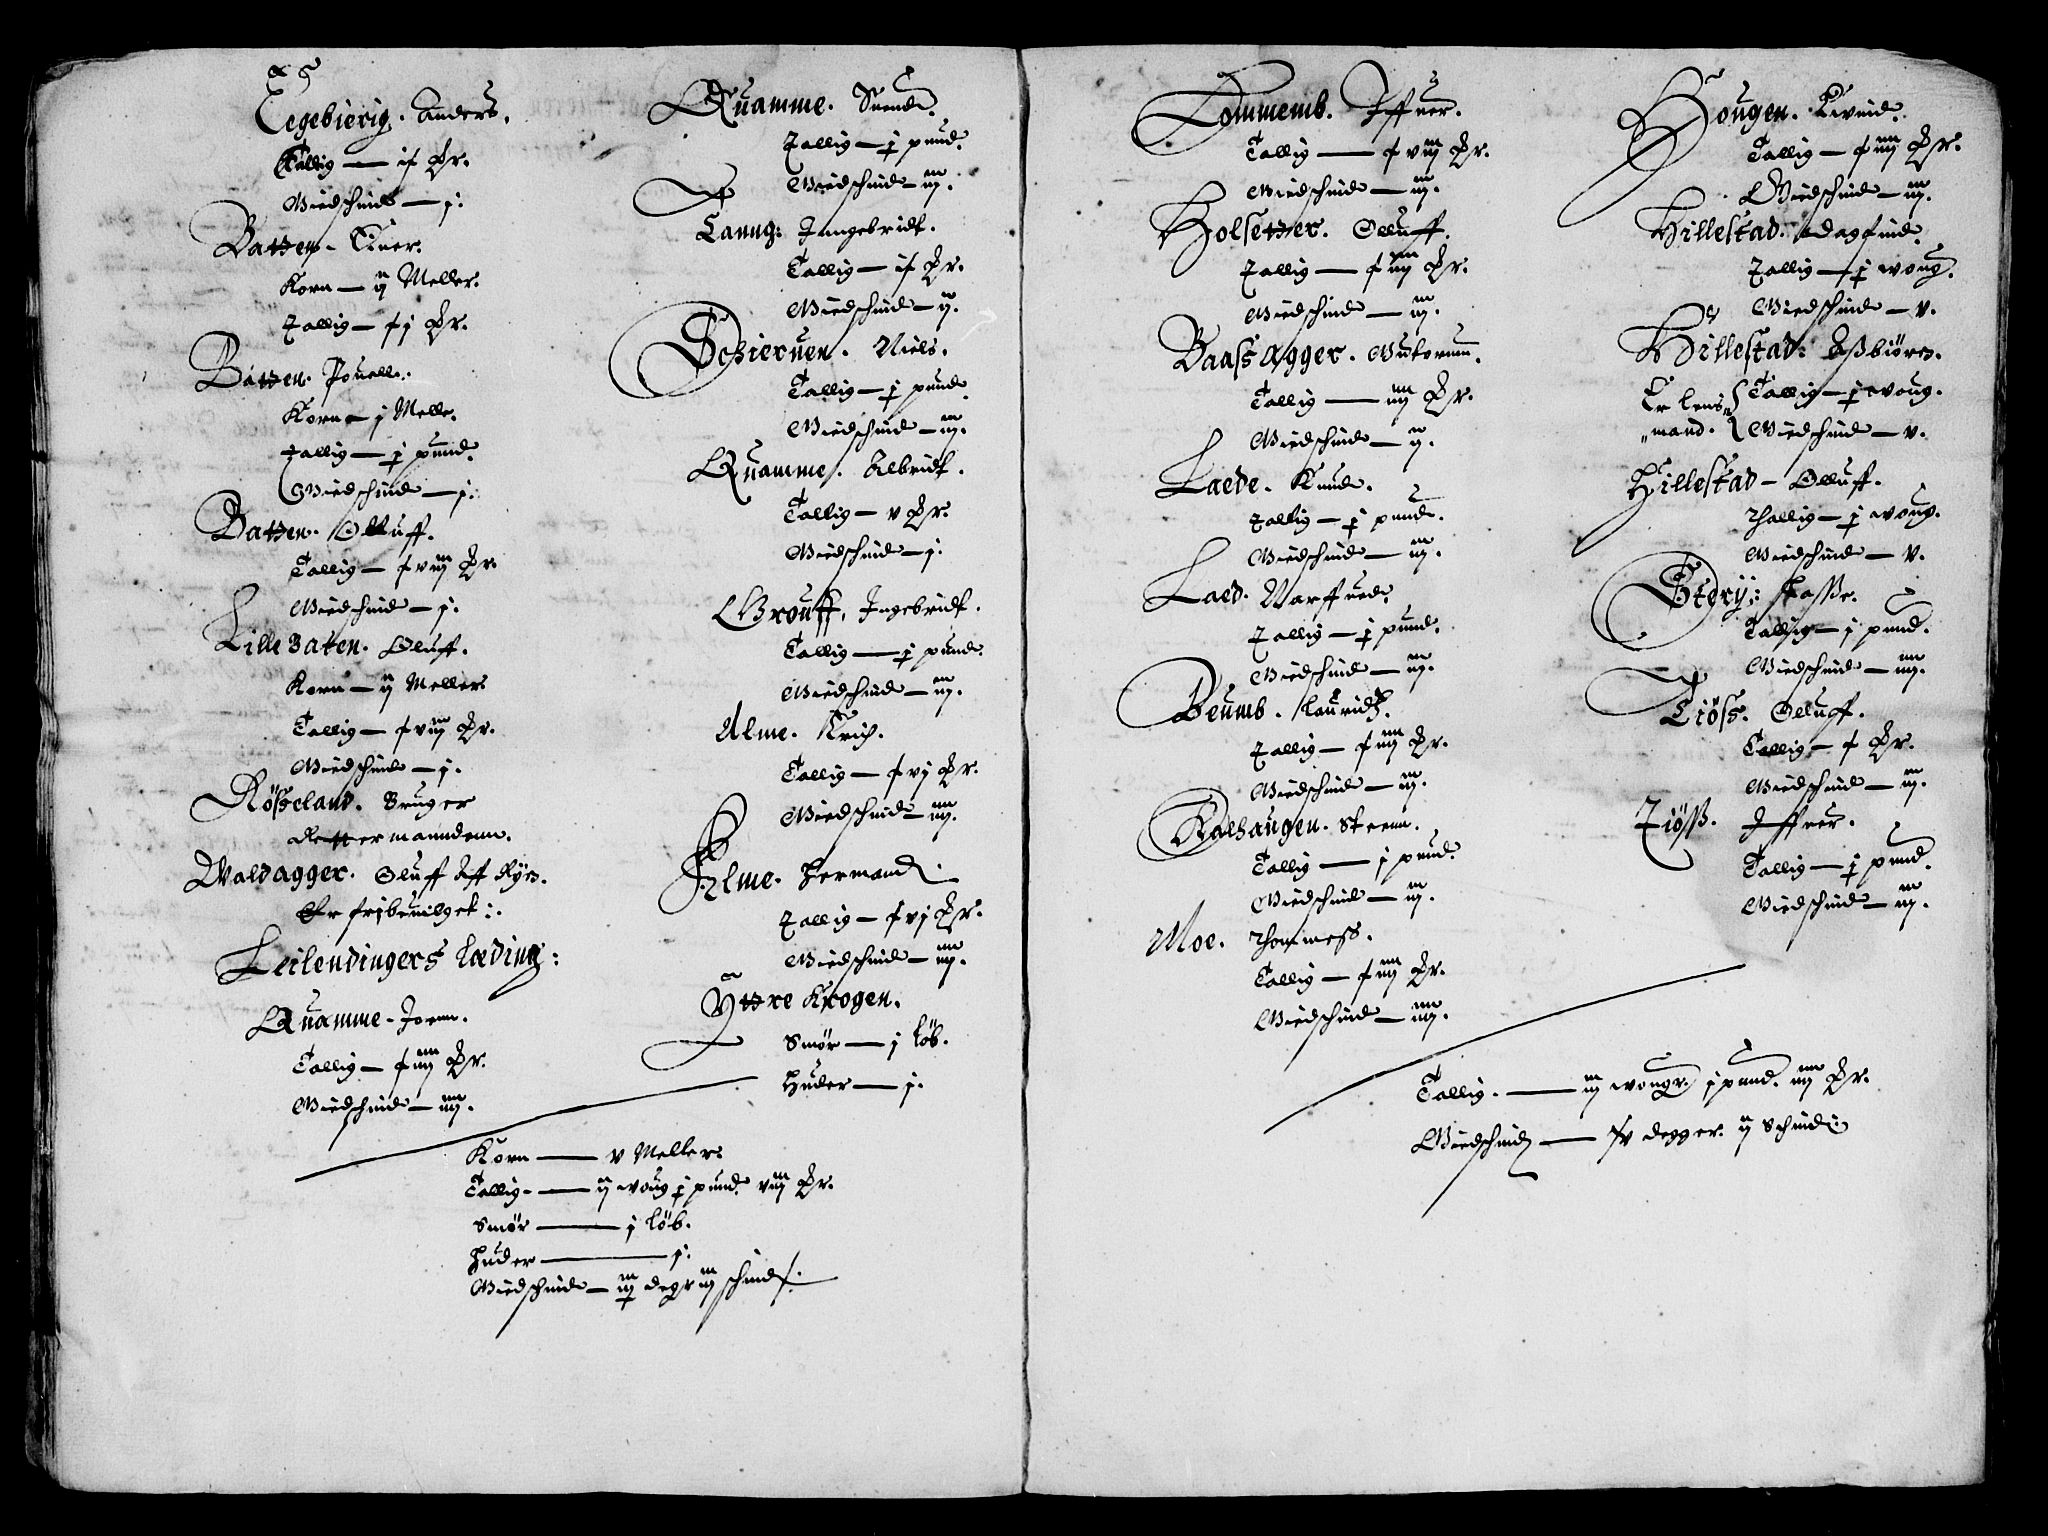 Tegebierig. Anders.
Tallig — if Pr.
Wiedschind — j.
Batzen. Einer.
Korn — ij Meller.
Tallig — fj Pr.
Batzen. Pouell.
Korn — j Melle.
Tallig — j pund.
Wiedschind — j.
Batzen. Olluff.
Tallig — f viij Pr.
Wiedschind — j.
Lille Baten. Oluff.
Korn — ij Meller
Tallig — f viij Pr.
Wiedschind — j.
Rösseland. Bruger
Rettermanndenn.
Waldagger. Oluff Aff Ryes.
Er fribeuilget:
Leilendingers leding:
Quamme. Joenn.
Tallig — f iiij Pr.
Wiedschind — iiij.
Quamme. Suend.
Tallig — j pund.
Wiedschind — iij.
Tanng: Inngebridt.
Tallig — if Pr.
Wiedschind — ij.
Schieruen. Niels.
Tallig — j pund
Wiedschind — iij.
Quamme. Albridt.
Tallig — v Pr.
Wiedschind — j.
Grouff. Ingebridt.
Tallig — j pund.
Wiedschind — iij.
Alme. Erich.
Tallig — f vj Pr.
Wiedschind — iiij.
Elme. Hermand:
Tallig — f vj Pr.
Wiedschind — iiij.
Yttre Krogen.
Smör — j löb.
Huder — j.
Korn — v Meller.
Tallig — ij woug j pund. viij Pr.
Smör — j löb.
Huder — j.
Wiedschind — iij degr iij schind:
Tommemb. Iffuer.
Tallig — f viij Pr.
Wiedschind — iij.
Holsetzer. Olluff.
Tallig — f iiij Pr.
Wiedschind — iij.
Baassagger. Gutorum.
Tallig — iiij Pr.
Wiedschind — ij.
Laede. Knud.
Tallig — j pund.
Wiedschind — iij.
Laed. Narffued.
Tallig — j pund.
Wiedschind — iij.
Beumb. Lauridtz.
Tallig — f iiij Pr.
Wiedschind — iij.
Rolhaugen. Steenn.
Tallig — j pund.
Wiedschind — iij.
Moe. Thommess.
Tallig — f iiij Pr.
Wiedschind — iiij.
Hougen. Eluind.
Tallig — f iiij Pr.
Wiedschind — iij.
Hillestad. Dagfind.
Tallig — j woug.
Wiedschind — v.
Hillestad: Asbiörn.
Er lens Tallig — j woug.
„mand. Wiedschind — v.
Hillestad — Olluff.
Thallig — j woug.
Wiedschind — v.
Stdrij: Lasse.
Tallig — j pund.
Wiedschind — iiij.
Tiöss. Olluff.
Tallig — f Pr.
Wiedschind — iij.
Tiöss. Iffuer.
Tallig — j pund.
Wiedschind — iij.
Tallig. — iij wougr. j pund. iiij Pr.
Wiedschind — fv degger. ij Schind: